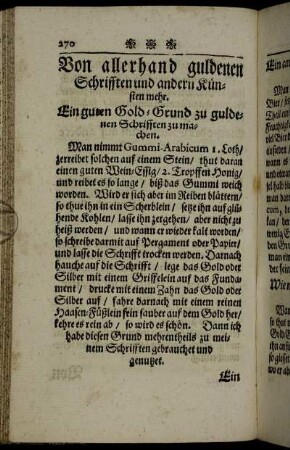 270
Von allerhand guldenen
Schrifften und andern Kün-
sten mehr.
Ein guten Gold-Grund zu gulde-
nen Schrifften zu ma-
chen.
Man nimmt Gummi-Arabicum 1. Loth/
zerreibet solchen auf einem Stein/ thut daran
einen guten Wein-Essig/ 2. Tropffen Honig/
und reibet es so lange/ biß das Gummi weich
worden. Wird er sich aber im Reiben blättern/
so thue ihn in ein Scherblein/ setze ihn auf glü-
hende Kohlen/ lasse ihn zergehen/ aber nicht zu
heiß werden/ und wann er wieder kalt worden/
so schreibe darmit auf Pergament oder Papier/
und lasse die Schrifft trocken werden. Darnach
hauche auf die Schrifft/ lege das Gold oder
Silber mit einem Griffelein auf das Funda-
ment/ drucke mit einem Zahn das Gold oder
Silber auf/ fahre darnach mit einem reinen
Haasen-Füßlein fein sauber auf dem Gold her/
kehre es rein ab/ so wird es schön. Dann ich
habe diesen Grund mehrentheils zu mei-
nem Schrifften gebrauchet und
genutzet.
Ein